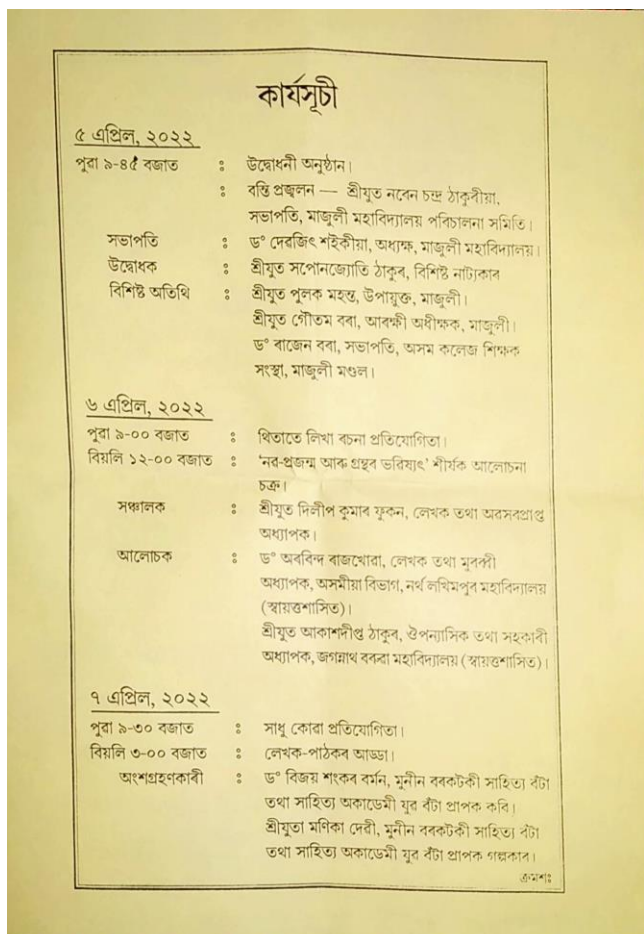 কাৰ্যসূচী
৫ এপ্ৰিল, ২০২২
পুৱা ৯-৪৫ বজাত : উদ্বোধনী অনুষ্ঠান।
: বন্তি প্ৰজ্বলন — শ্ৰীযুত নৰেন চন্দ্ৰ ঠাকুৰীয়া,
সভাপতি, মাজুলী মহাবিদ্যালয় পৰিচালনা সমিতি।
সভাপতি : ড° দেৱজিৎ শইকীয়া, অধ্যক্ষ, মাজুলী মহাবিদ্যালয়।
উদ্বোধক : শ্ৰীযুত সপোনজ্যোতি ঠাকুৰ, বিশিষ্ট নাট্যকাৰ
বিশিষ্ট অতিথি : শ্ৰীযুত পুলক মহন্ত, উপায়ুক্ত, মাজুলী।
শ্ৰীযুত গৌতম বৰা, আৰক্ষী অধীক্ষক, মাজুলী।
ড° ৰাজেন বৰা, সভাপতি, অসম কলেজ শিক্ষক
সংস্থা, মাজুলী মণ্ডল।
৬ এপ্ৰিল, ২০২২
পুৱা ৯-০০ বজাত : থিতাতে লিখা ৰচনা প্ৰতিযোগিতা।
বিয়লি ১২-০০ বজাত : ‘নৱ-প্ৰজন্ম আৰু গ্ৰন্থৰ ভৱিষ্যৎ’ শীৰ্ষক আলোচনা
চক্ৰ।
সঞ্চালক : শ্ৰীযুত দিলীপ কুমাৰ ফুকন, লেখক তথা অৱসৰপ্ৰাপ্ত
অধ্যাপক।
আলোচক : ড° অৰবিন্দ ৰাজখোৱা, লেখক তথা মুৰব্বী
অধ্যাপক, অসমীয়া বিভাগ, নৰ্থ লখিমপুৰ মহাবিদ্যালয়
(স্বায়ত্তশাসিত)।
শ্ৰীযুত আকাশদীপ্ত ঠাকুৰ, ঔপন্যাসিক তথা সহকাৰী
অধ্যাপক, জগন্নাথ বৰুৱা মহাবিদ্যালয় (স্বায়ত্তশাসিত)।
৭ এপ্ৰিল, ২০২২
পুৱা ৯-৩০ বজাত : সাধু কোৱা প্ৰতিযোগিতা।
বিয়লি ৩-০০ বজাত : লেখক-পাঠকৰ আড্ডা।
অংশগ্ৰহণকাৰী : ড° বিজয় শংকৰ বৰ্মন, মুনীন বৰকটকী সাহিত্য বঁটা
তথা সাহিত্য অকাডেমী যুৱ বঁটা প্ৰাপক কবি।
শ্ৰীযুতা মণিকা দেৱী, মুনীন বৰকটকী সাহিত্য বঁটা
তথা সাহিত্য অকাডেমী যুৱ বঁটা প্ৰাপক গল্পকাৰ।
ক্ৰমশঃ